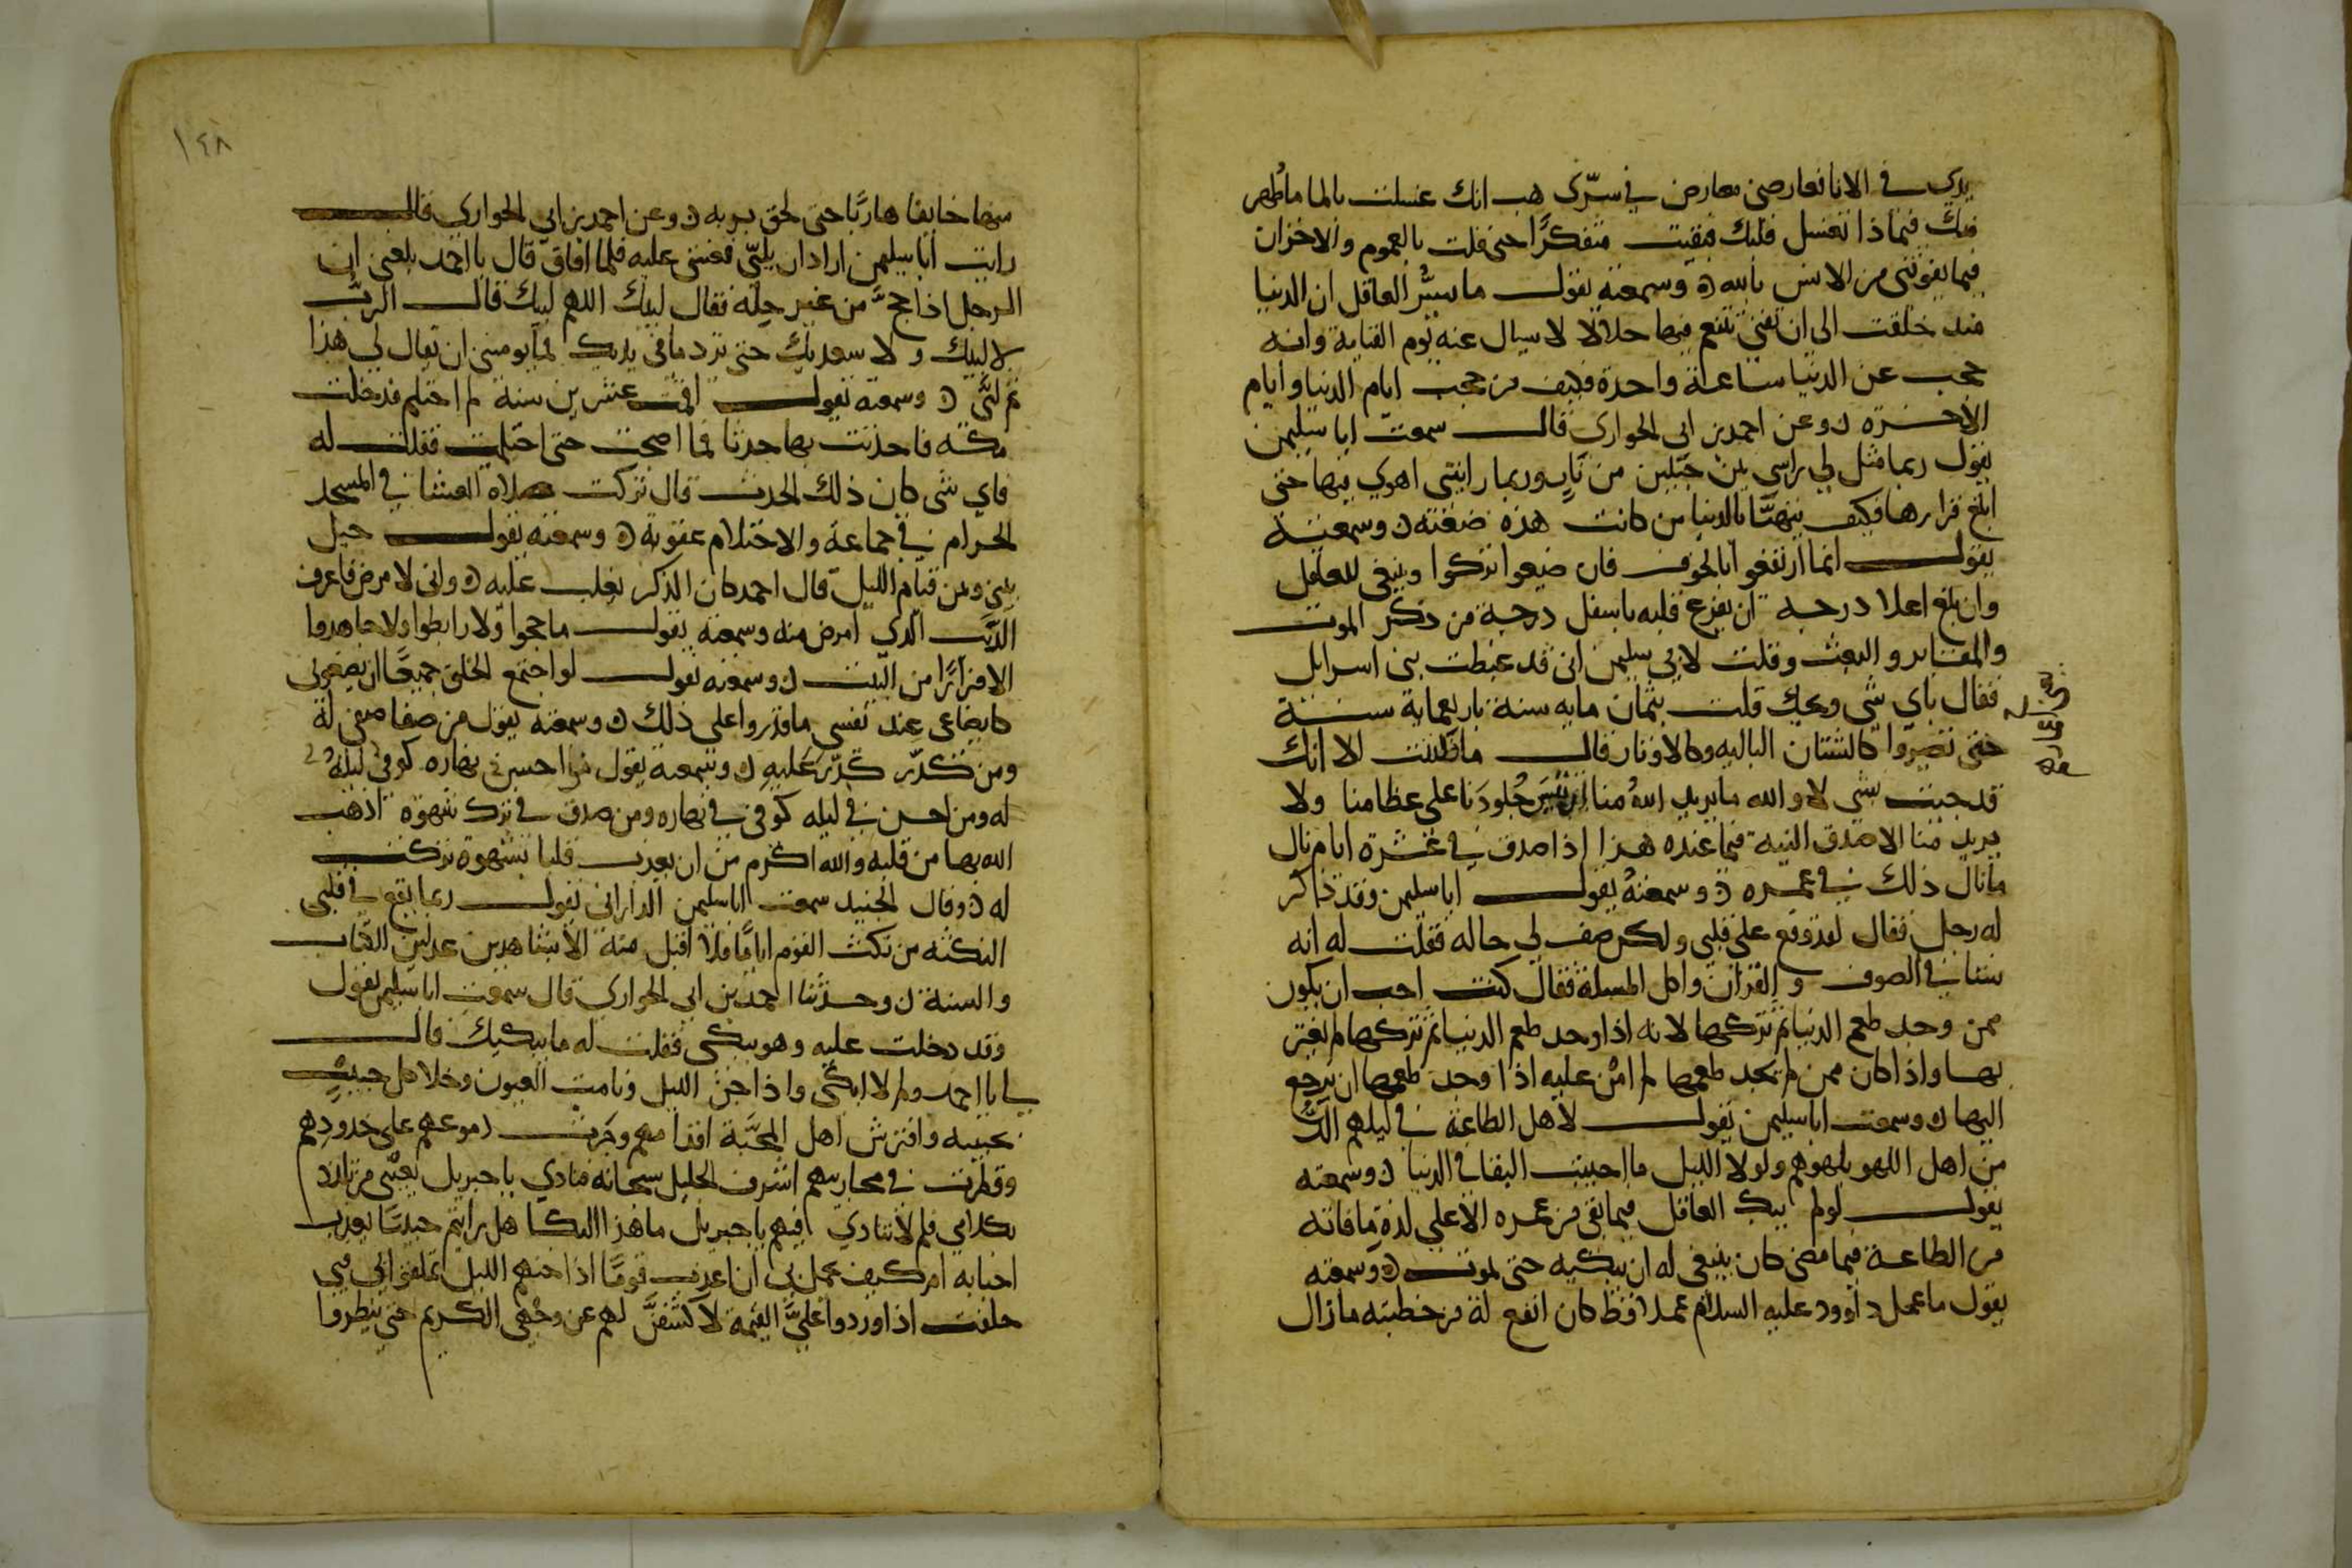 يدي في الانا فعارضني معارض في سرّي هب انك غسلت بالما ما ظهر
منك فبماذا تغسل قلبك فبقيت متفكرًا حتى قلت بالغموم والاحزان
فيما يفوتني من الانس بالله ⁕ وسمعته يقول ما يسُرُّ العاقل ان الدنيا
منذ خلقت الى ان تفنى يتنعم فيها حلالا لا يسال عنه يوم القيامة وانه
حجب عن الدنيا ساعة واحدة فكيف من حجب ايام الدنيا وايام
الاخرة ⁕ وعن احمد بن ابي الحواري قال سمعت ابا سليمن
يقول ربما مثل لي راسي بين جبلين من نارٍ وربما رايتني اهوي فيها حتى
ابلغ قرارها فكيف يتهنّا بالدنيا من كانت هذه صفته ⁕ وسمعته
يقول انما ارتفعوا بالخوف فان ضيعوا نزلوا وينبغي للعاقل
وان بلغ اعلا درجة ان يفزع قلبه باسفل درجة من ذكر الموت
والمقابر والبعث وقلت لابي سليمن اني قد غبطت بني اسرايل
فقال باي شي ويحك قلت بثمان مايه سنة باربعماية سنة
حتى تصيروا كالشنان الباليه وكالاوتار قال ما ظننت الا انك
قد جيت بشي لا والله ما يريد اللهُ منا ان تَيْبَسَ جُلودَنا على عظامنا ولا
يريد منا الا صدق النية فيما عنده هذا اذا صدق في عشرة ايام نال
ما نال ذلك في عمره ⁕ وسمعتهُ يقول ابا سليمن وقد ذاكر
له رجل فقال لقد وقع على قلبي ولكن صف لي حاله فقلت له انه
نشا في الصوف والقران واكل المسلة فقال كنت احب ان يكون
ممن وجد طعم الدنيا ثم تركها لانه اذا وجد طعم الدنيا ثم تركها لم يغتر
بها واذا كان ممن لم يجد طعمها لم امن عليه اذا وجد طعمها ان يرجع
اليها ⁕ وسمعت ابا سليمن يقول لاهل الطاعة في ليلهم الذّ
من اهل اللهو بلهوهم ولولا الليل ما احببت البقا في الدنيا ⁕ وسمعته
يقول لو لم يبك العاقل فيما بقي من عمره الا على لذةِ ما فاته
من الطاعة فيما مضى كان ينبغي له ان يبكيه حتى يموت ⁕ وسمعته
يقول ما عمل داوود عليه السلام عملا قط كان انفع له من خطيته ما زال
١٤٨
منها خايفا هاربًا حتى لحق بربه ⁕ وعن احمد بن ابي الحواري قال
رايت ابا سليمن اراد ان يلبّي فغشي عليه فلما افاق قال يا احمد بلغني ان
الرجل اذا حجَّ من غير حِلّه فقال لبيك اللهم لبيك قال الربُّ
لا لبيك ولا سعديك حتى ترد ما في يديك فما يومنني ان يقال لي هذا
ثم لبَّى ⁕ وسمعته يقول اقمت عشرين سنة لم احتلم فدخلت
مكه فاحدثت بها حدثا فما اصبحت حتى احتلمت فقلت له
فاي شي كان ذلك الحدث قال تركت صلاة العشا في المسجد
الحرام في جماعة والاحتلام عقوبة ⁕ وسمعته يقول حيل
بيني وبين قيام الليل قال احمد كان الذكر يغلب عليه ⁕ واني لامرض فاعرف
الذنب الذي امرض منه وسمعته يقول ما حجوا ولا رابطوا ولا جاهدوا
الا فرارًا من البيت ⁕ وسمعته يقول لو اجتمع الخلق جميعًا ان يضعوني
كايضاعي عند نفسي ما قدروا على ذلك ⁕ وسمعته يقول من صفا صفي له
ومن كدّر كدّر عَليهِ ⁕ وسمعته يقول من احسن في نهاره كوفي ليله
له ومن احسن في ليله كوفي في نهاره ومن صدق في ترك شهوة اذهب
الله بها من قلبه والله اكرم من ان يعذب قلبا بشهوة تركت
له ⁕ وقال الجنيد سمعت ابا سليمن الداراني يقول ربما يقع في قلبي
النكته من نكت القوم ايامًا فلا اقبل منه الا بشاهدين عدلين الكتاب
والسنة ⁕ وحدثنا احمد بن ابي الحواري قال سمعت ابا سليمن يقول
وقد دخلت عليه وهو يبكي فقلت له ما يبكيك قال
لي يا احمد ولم لا ابكي واذا جن الليل ونامت العيون وخلا كل حبيبٍ
بحبيبه وافترش اهل المحبَّة اقدامهم وجَرت دموعهم على خدودهم
وقطرت في محاريبهم اشرف الجليل سبحانه منادي يا جبريل بعيني من تلذذ
بكلامي فلم لا تنادي فيهم يا جبريل ما هذا البكا هل رايتم حبيبًا يعذب
احبابه ام كيف يجمل بي ان اعذب قومًا اذا جنهم الليل تملقوا لي فبي
حلفت اذا وردوا عليَّ القيمة لاكشفنَّ لهم عن وجهي الكريم حتى ينظروا